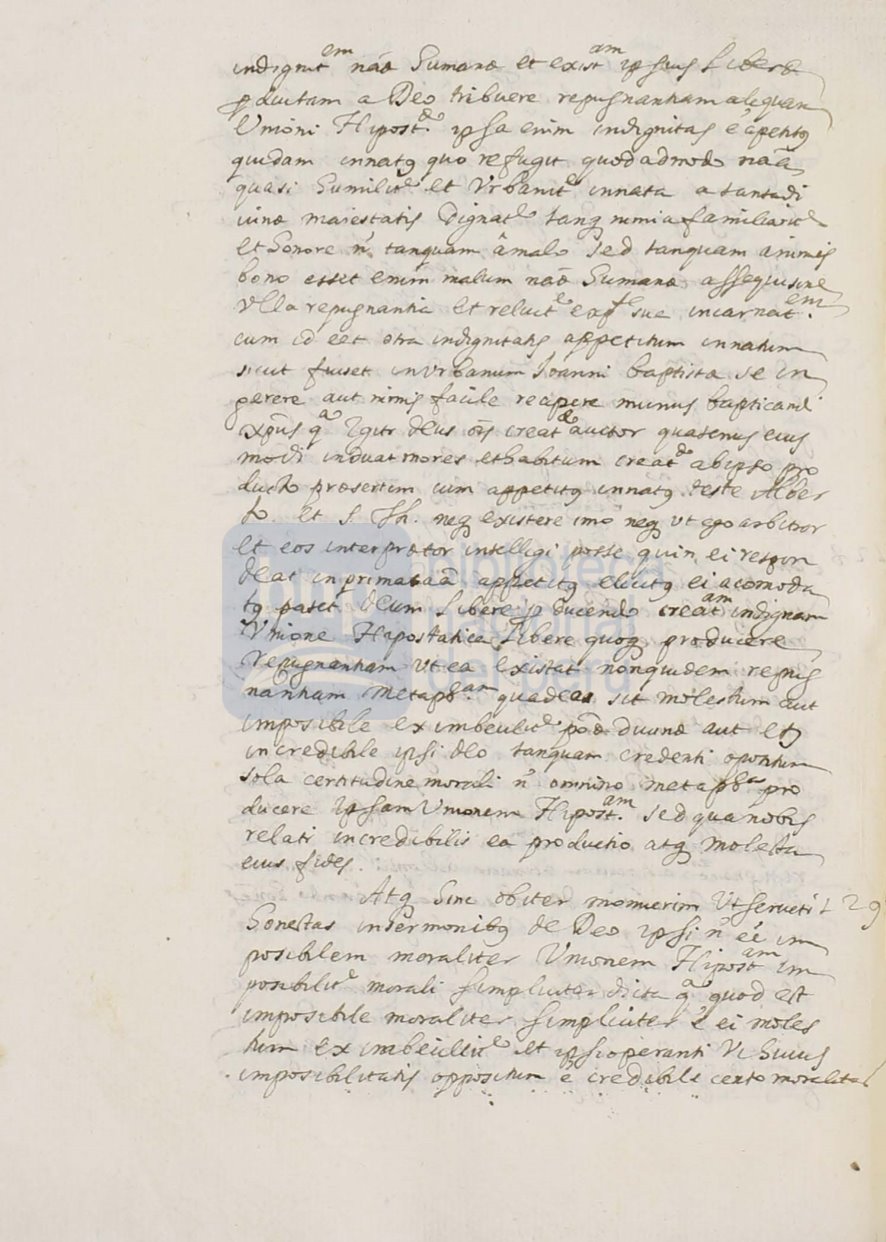 indignit.em náo Humano et exist.am ipsius Libere
pductam a Deo tribuere repugnantiam aliquam
Unioni Hipost.ae ipsa enim indignitas é apetitq
quidam innatq quo refugit quodadmodo naã
quasi Humilit.e et Vrbanit.e innata a tanta di
uinæ maiestatis Dignat.e tanq nimia familiarit.e
et Honore n. tanquam â malo sed tanquam a nimis
bono esset enim malum náæ Humanæ assequi sine
Vlla repugnantia et reluct.e ex pte sue incarnat.em
cum id eet ctra indignitatis appetitum innatum
sicut fuiset inVrbanum Ioanni baptistæ se in
gerere aut nimis facile recipere munus baptizandi
Xpús q.a Igitr deus ois creat.ae auctor quatenus eius
modi induat mores et habitum creat.ae ab ipso pro
ducto præsertim cum appetitq innatq teste Alber
to. et S. Th. neq existere imo neq vt ego arbitror
et eos interprætor intelligi posse quin ei respon
deat in prima caã appetitq elicitq ei acomoda
tq patet deum Libere p ducendo creat.am indignam
Vnione Hipostatica Libere quoq producere
repugnantiam vt ea existat non quidem repug
nantiam metaph.am qua deo sit molestum aut
imposibile ex imbecilit.e pōæ diuinæ aut etq
incredibile ipsi deo tanquam credenti opositum
sola certitudine morali n. omnino metaph.a pro
ducere Ipsam Vnionem Hipost.am sed qua nobis
relati incredibilis ea productio atq molesta
eius fides.
Atq Hinc obiter monuerim Vt seruetur 129
Honestas in sermonibq de Deo ipsi n. eé im
posibilem moraliter Vnionem Hipost.am im
posibilit.e morali simpliciter dicta q.a quod est
imposibile moraliter simpliciter é ei moles
tum ex imbecillit.e et ipsi operanti Vt Huius
imposibilitatis oppositum é credibile certo moralita